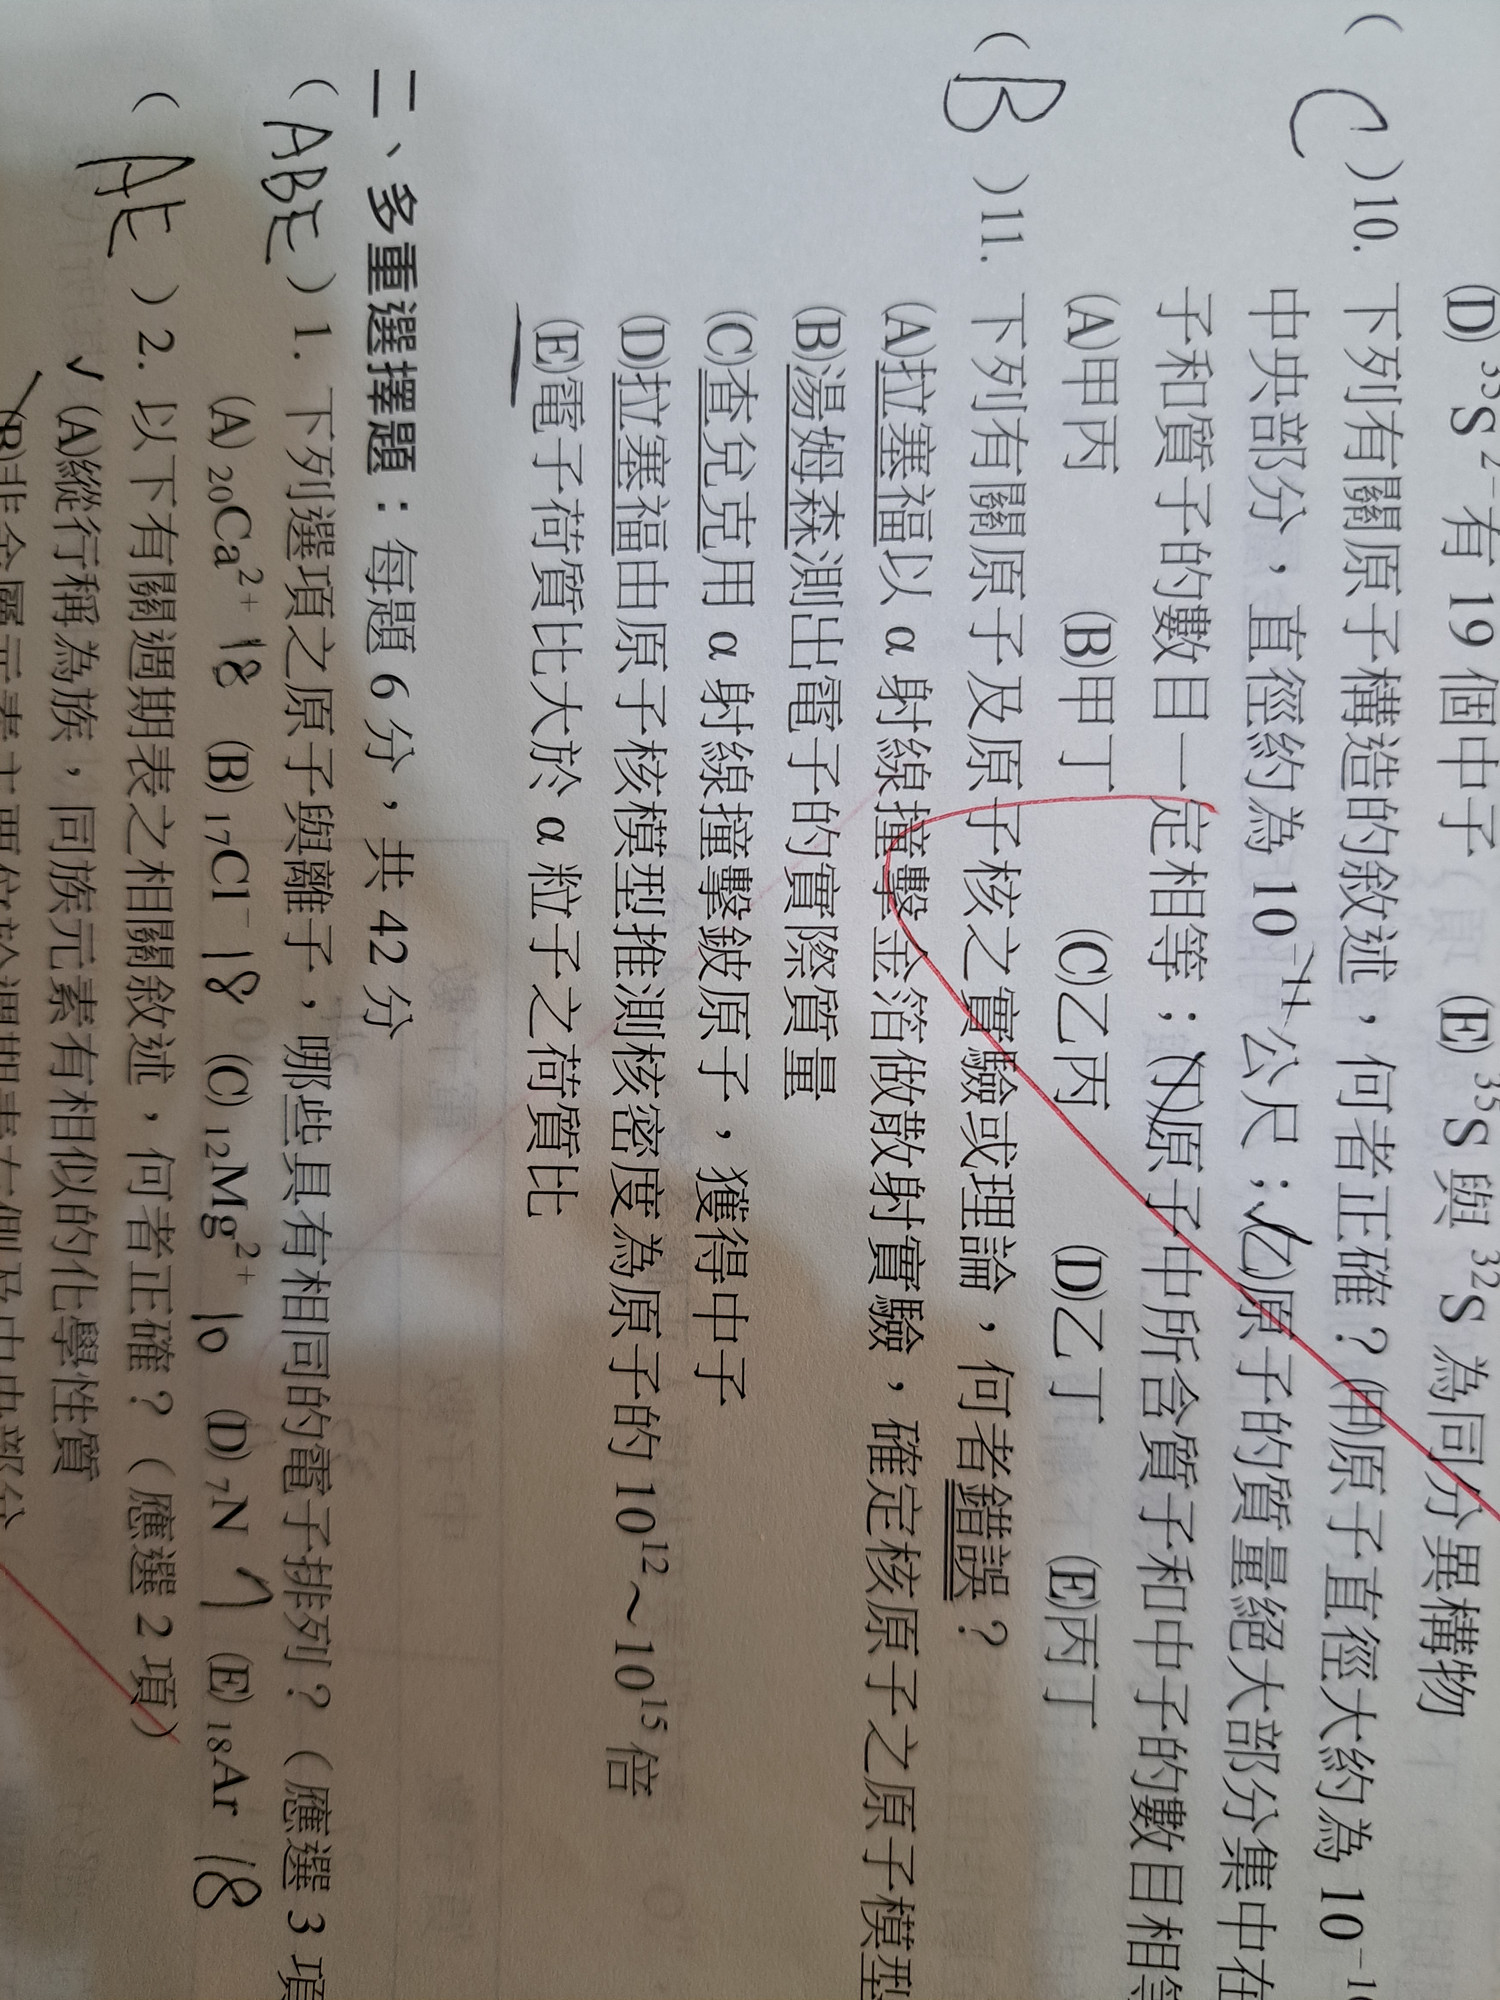 (D) ³⁵S²⁻有 19 個中子 (E) ³⁵S 與 ³²S 為同分異構物
( C )10. 下列有關原子構造的敘述，何者正確？(甲)原子直徑大約為 10⁻¹⁰
中央部分，直徑約為 10⁻¹⁴公尺；(乙)原子的質量絕大部分集中在
子和質子的數目一定相等；(丁)原子中所含質子和中子的數目相等
(A)甲丙 (B)甲丁 (C)乙丙 (D)乙丁 (E)丙丁
( B )11. 下列有關原子及原子核之實驗或理論，何者錯誤？
(A)拉塞福以 α 射線撞擊金箔做散射實驗，確定核原子之原子模型
(B)湯姆森測出電子的實際質量
(C)查兌克用 α 射線撞擊鈹原子，獲得中子
(D)拉塞福由原子核模型推測核密度為原子的 10¹²～10¹⁵倍
(E)電子荷質比大於 α 粒子之荷質比
二、多重選擇題：每題 6 分，共 42 分
( ABE ) 1. 下列選項之原子與離子，哪些具有相同的電子排列？（應選 3 項
(A) ₂₀Ca²⁺ 18 (B) ₁₇Cl⁻ 18 (C) ₁₂Mg²⁺ 10 (D) ₇N 7 (E) ₁₈Ar 18
( AE ) 2. 以下有關週期表之相關敘述，何者正確？（應選 2 項）
✓ (A)縱行稱為族，同族元素有相似的化學性質
(B)非金屬元素主要位於週期表右側及中央部分